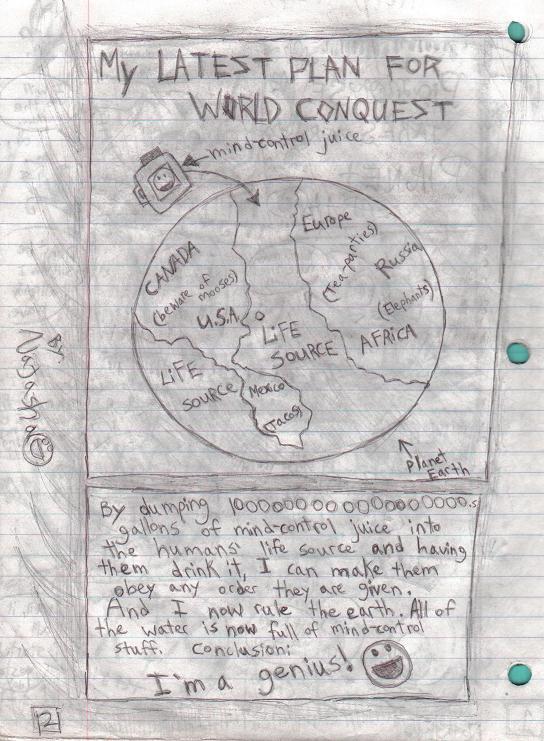 My LATEST PLAN FOR
WORLD CONQUEST
mind-control juice
Europe
(Tea-parties)
Russia
CANADA
(beware of mooses)
(Elephants)
U.S.A.
AFRICA
LiFE
SOURCE
LiFE
SOURCE
Mexico
(Tacos)
Planet
Earth
By dumping 10000000000000000000.s
gallons of mind-control juice into
the humans' life source and having
them drink it, I can make them
obey any order they are given.
And I now rule the earth. All of
the water is now full of mind-control
stuff. Conclusion:
I'm a genius!
By:
2